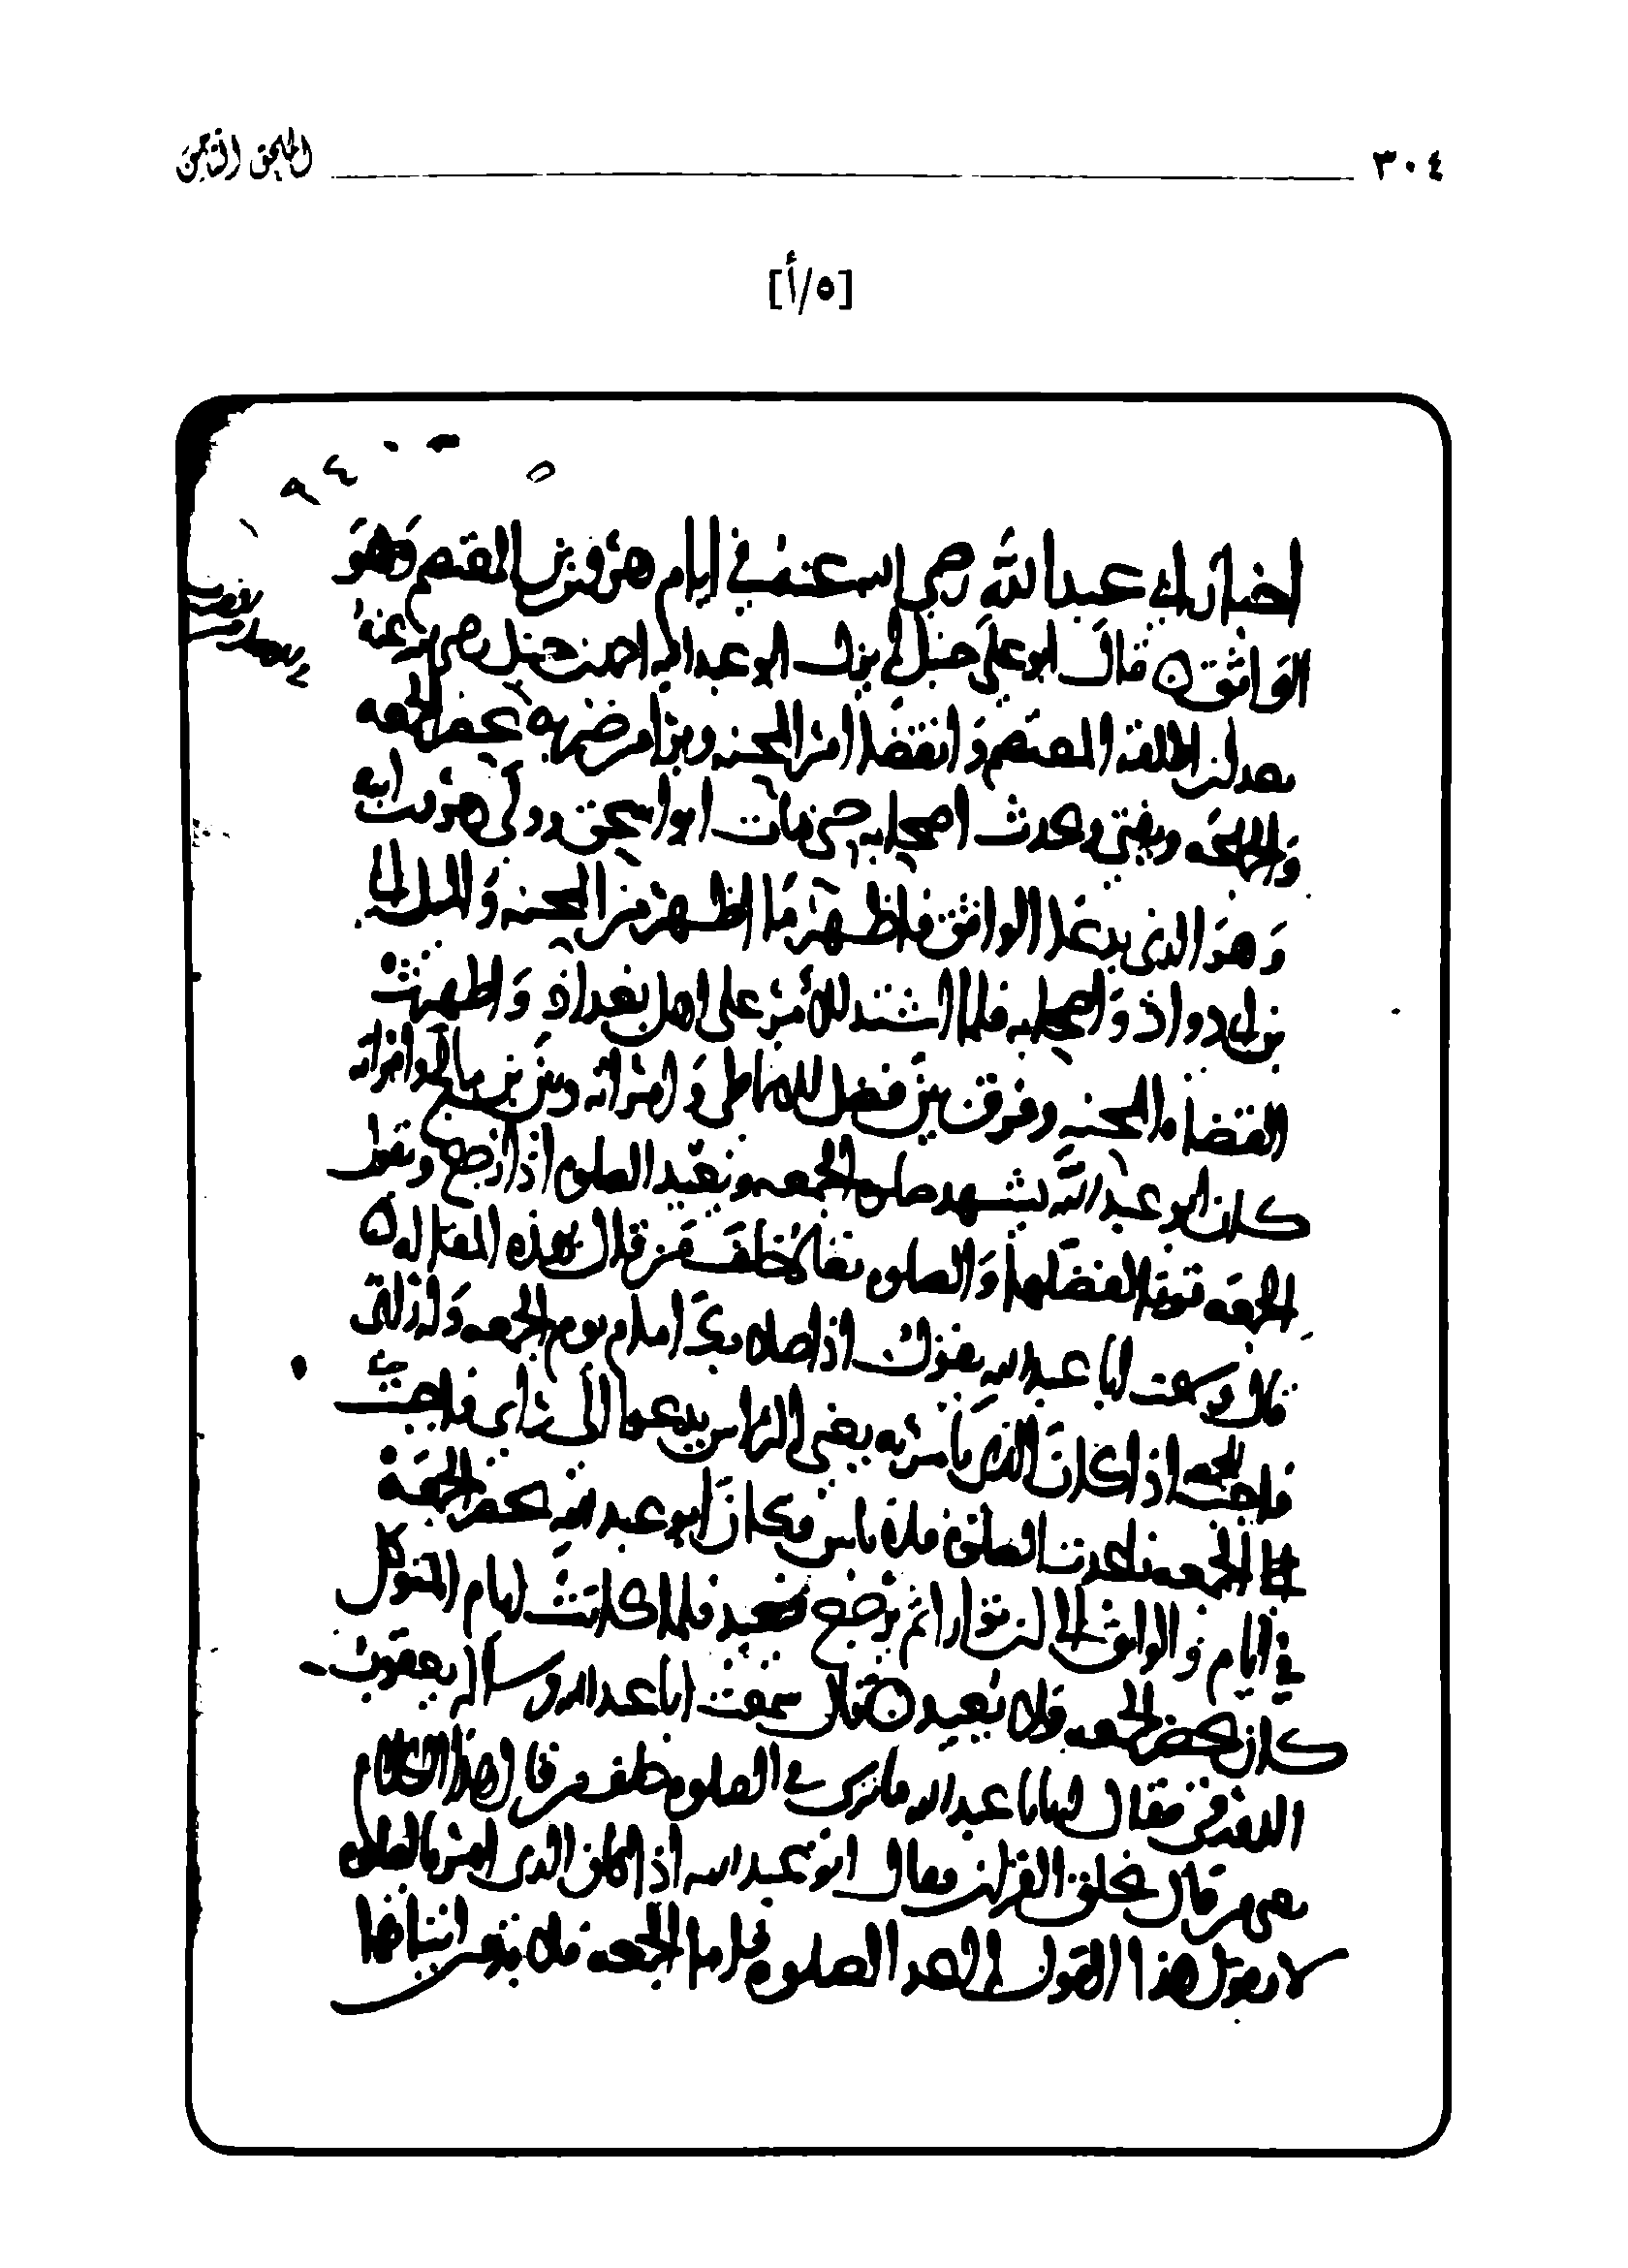 ٣٠٤ الملحق الثامن
[٥/أ]
٩٤
اخبار ابي عبد الله رضي الله عنه في ايام هرون بن المعتصم وهو
الواثق ٥ قال ابو علي حنبل لم يزل ابو عبد الله احمد بن حنبل رضي الله عنه
بعد ان اطلقه المعتصم وانقضا امر المحنه وبرا من ضربه يحضر الجمعه
والجماعه ويفتي ويحدث اصحابه حتى مات ابو اسحق وولي هرون ابنه
وهو الذي يدعا الواثق فاظهر ما اظهر من المحنه والميل الى
بن ابي دواد واصحابه فلما اشتد الامر على اهل بغداد واظهرت
القضاه المحنه وفرق بين فضل الانماطي وامراته وبين بن صالح وامراته
كان ابو عبد الله يشهد صلوه الجمعه ويعيد الصلوه اذا رجع ويقول
الجمعه توتى لفضلها والصلوه تعاد خلف من قال بهذه المقاله ٥
قال وسمعت ابا عبد الله يقول اذا صلا بك امام يوم الجمعه
فاحب اذا كان الذي يامر به يعني الراس يدعوا الى راي فاحب
الجمعه فاعد الصلوه فلا باس وكان ابو عبد الله يحضر الجمعة
في ايام الواثق الى ان توارا ثم يرجع فيعيد فلما كانت ايام المتوكل
كان يحضر الجمعه فلا يعيد ٥ قال سمعت ابا عبد الله وساله يعقوب
الدورقي فقال يابا عبد الله ما ترى في الصلوه خلف من قال هذا الكلام
قال بخلق القران فقال ابو عبد الله اذا كان الذي امر بالصلوه
لا يقول هذا القول لم اعد الصلوه فاما الجمعه فلا